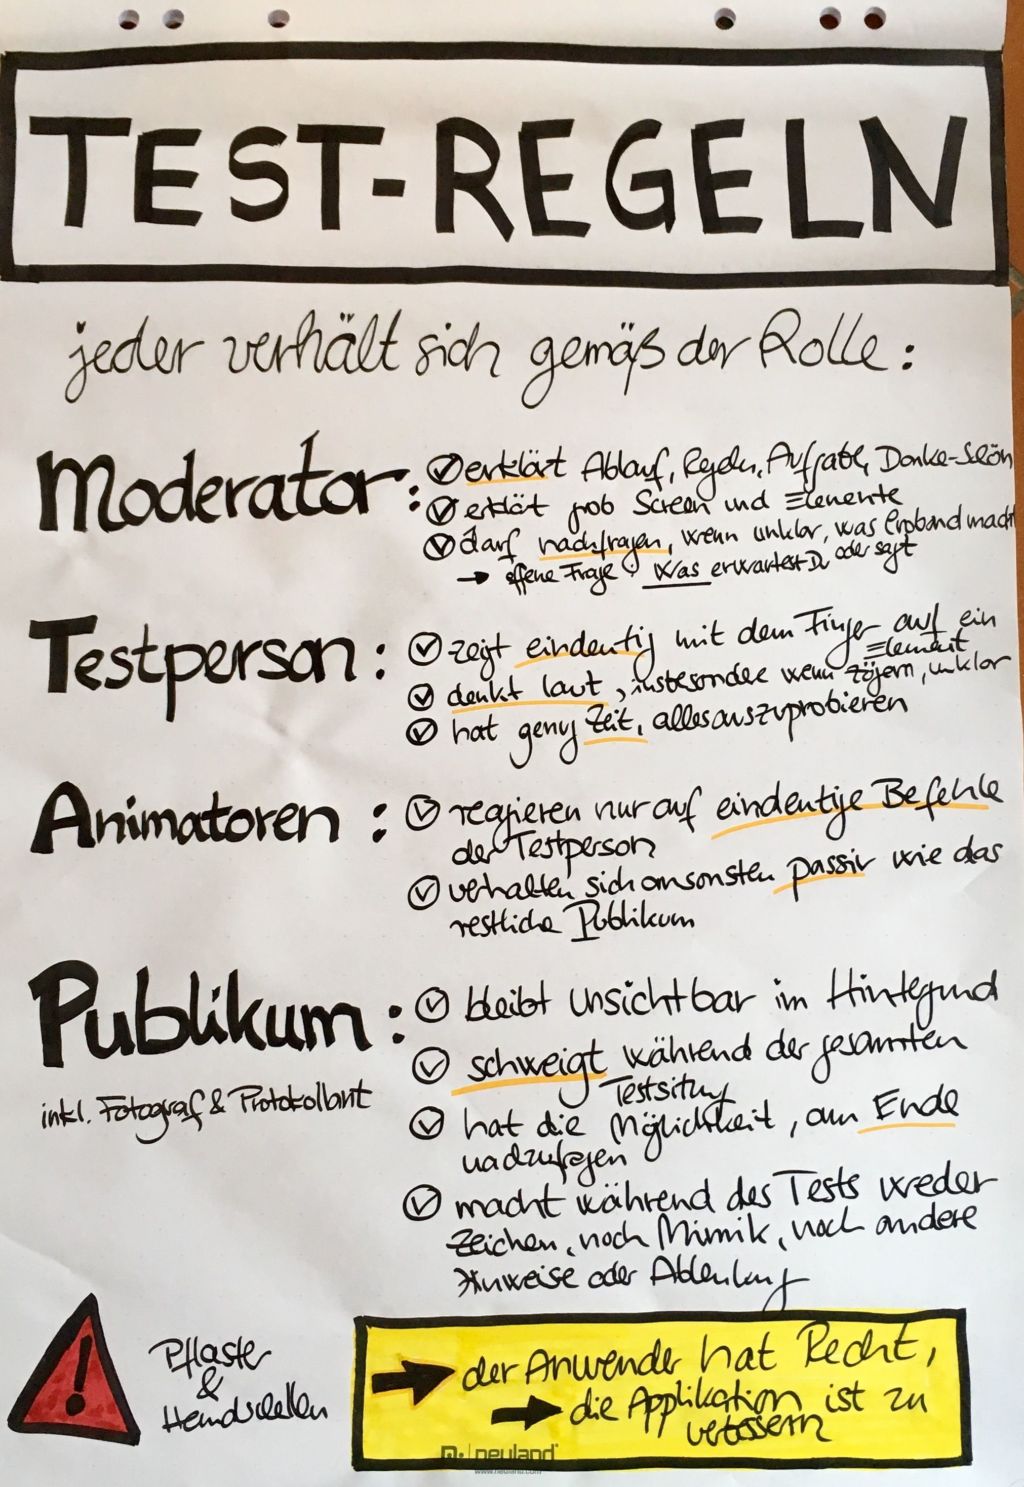 TEST-REGELN
jeder verhält sich gemäß der Rolle:
Moderator:
erklärt Ablauf, Regeln, Aufgabe, Danke-Schön
erklät grob Screen und Elemente
darf nachfragen, wenn unklar, was Proband macht
oder sagt
→ offene Frage: Was erwartest Du
Testperson:
zeigt eindeutig mit dem Finger auf ein
Element
denkt laut, insbesondere wenn zögern, unklar
hat genug Zeit, alles auszuprobieren
Animatoren:
reagieren nur auf eindeutige Befehle
der Testperson
verhalten sich ansonsten passiv wie das
restliche Publikum
Publikum:
inkl. Fotograf & Protokollant
bleibt unsichtbar im Hintegrund
schweigt während der gesamten
Testsitung
hat die Möglichkeit, am Ende
nachzufragen
macht während des Tests weder
Zeichen, noch Mimik, noch andere
Hinweise oder Ablenkung
!
Pflaster
&
Handschellen
→ der Anwender hat Recht,
→ die Applikation ist zu
verbessern
neuland
www.neuland.com